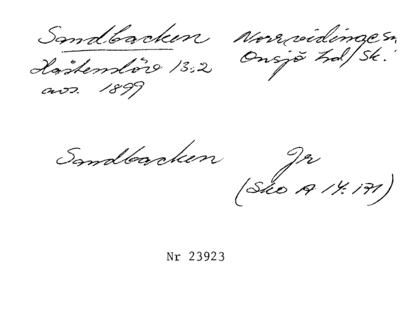 Sandbacken Norrvidinge sn
Hästenslöv 13:2 Onsjö hd/Sk.
avs. 1899
Sandbacken Jr
(Sko A 14:171)
Nr 23923